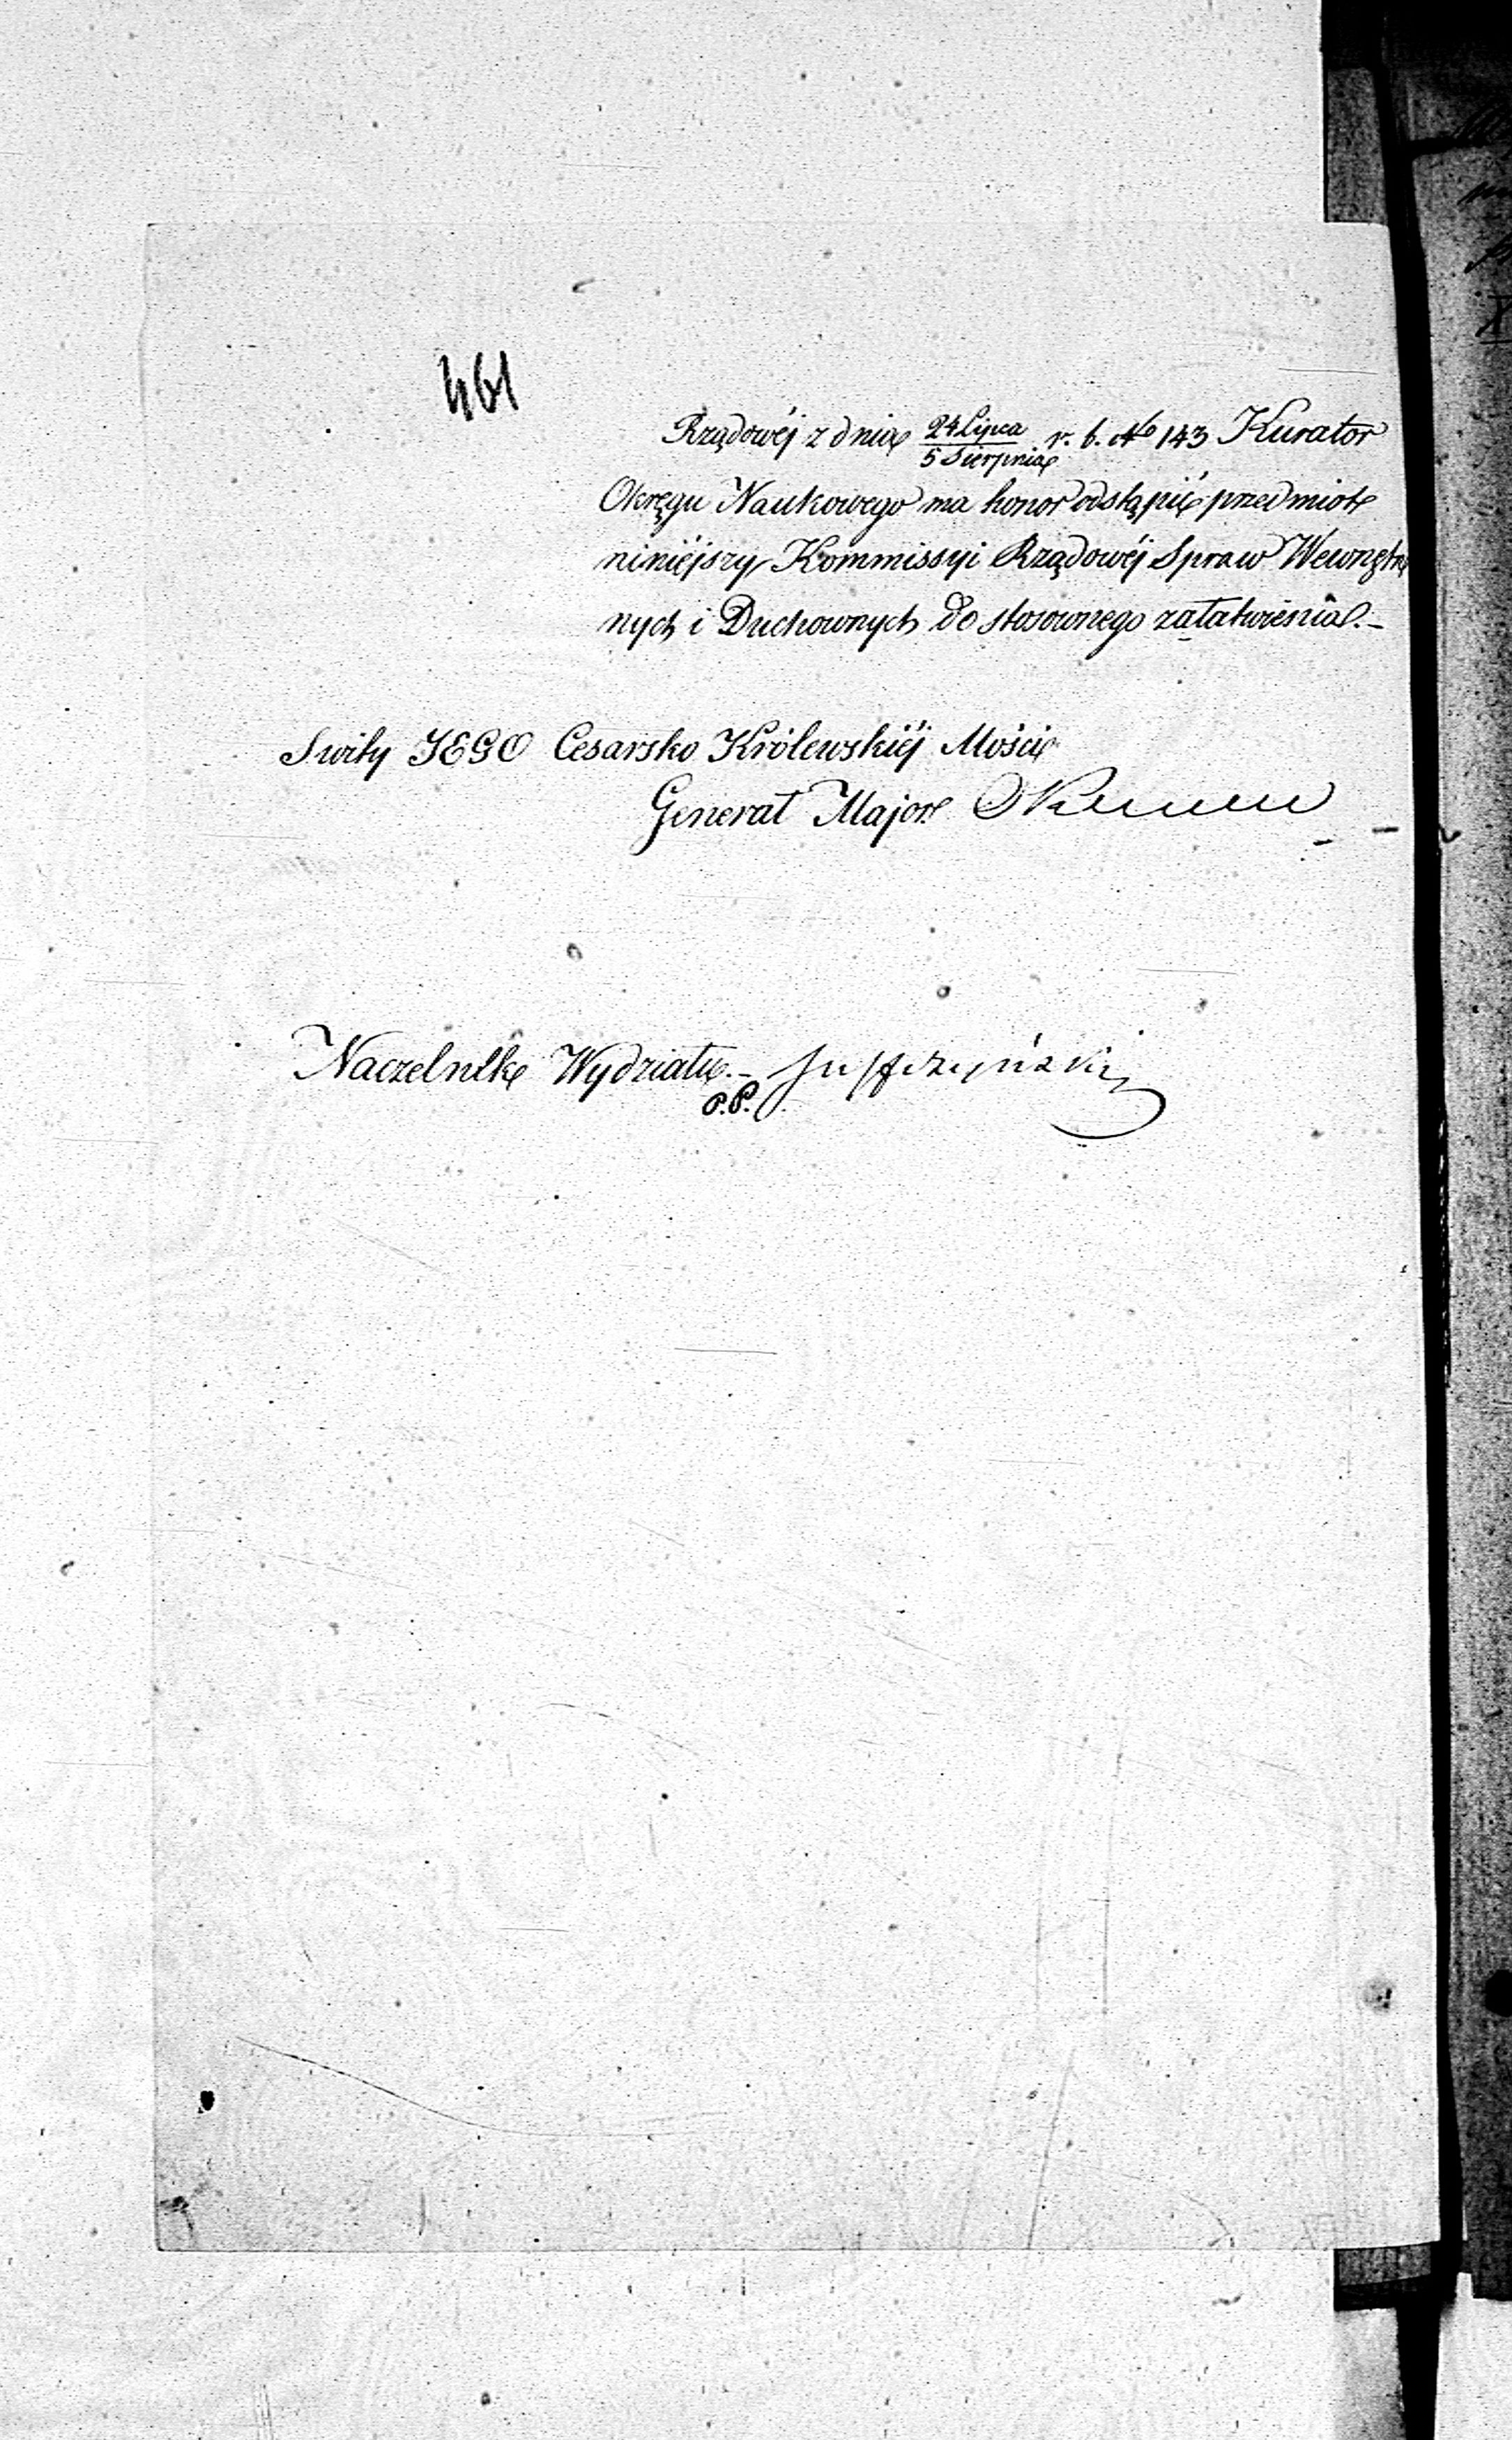 461
Rządowéj z dnia 24 Lipca / 5 Sierpnia r. b. No 143 Kurator
Okręgu Naukowego ma honor odstąpić przedmiot
niniéjszy Kommissyi Rządowéj Spraw Wewnętrz
nych i Duchownych do stosownego załatwienia.–
Swity JEGO Cesarsko Królewskiéj Mości
Generał Major
Naczelnik Wydziału.–
P.P.